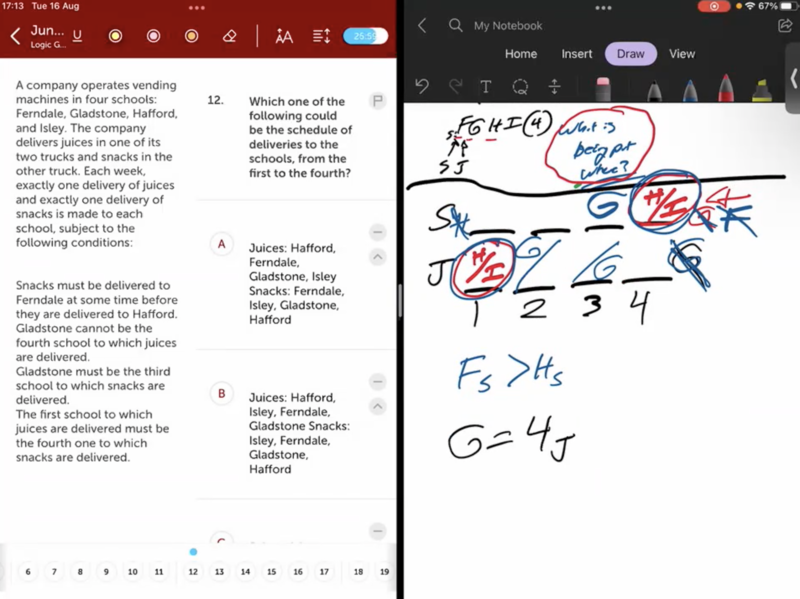 17:13 Tue 16 Aug
67%
Jun...
Logic G...
U
AA
25:55
A company operates vending
machines in four schools:
Ferndale, Gladstone, Hafford,
and Isley. The company
delivers juices in one of its
two trucks and snacks in the
other truck. Each week,
exactly one delivery of juices
and exactly one delivery of
snacks is made to each
school, subject to the
following conditions:
Snacks must be delivered to
Ferndale at some time before
they are delivered to Hafford.
Gladstone cannot be the
fourth school to which juices
are delivered.
Gladstone must be the third
school to which snacks are
delivered.
The first school to which
juices are delivered must be
the fourth one to which
snacks are delivered.
12.
Which one of the
following could
be the schedule of
deliveries to the
schools, from the
first to the fourth?
A
Juices: Hafford,
Ferndale,
Gladstone, Isley
Snacks: Ferndale,
Isley, Gladstone,
Hafford
B
Juices: Hafford,
Isley, Ferndale,
Gladstone Snacks:
Isley, Ferndale,
Gladstone,
Hafford
6 7 8 9 10 11 12 13 14 15 16 17 18 19
My Notebook
Home Insert Draw View
T
F G H I (4)
S J
What is
being put
where?
S H G H/I G F
J H/I G/ /G G
1 2 3 4
Fs > Hs
G = 4J